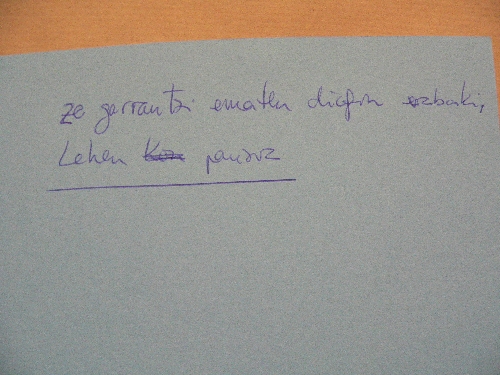 ze garrantzi ematen diogun erabaki,
Lehen pausuz